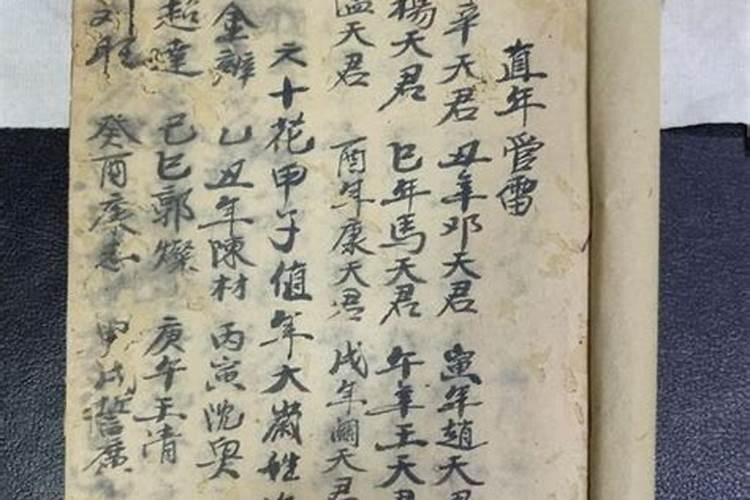 直年管雷
辛天君 丑年邓天君 寅年趙天君
楊天君 巳年馬天君 午年王天君
温天君 酉年康天君 戌年關天君
六十花甲子值年大歲姓
金辨 乙丑年陳材 丙寅沈興
超達 己巳郭燦 庚午王清
癸酉康志 甲戌誓廣